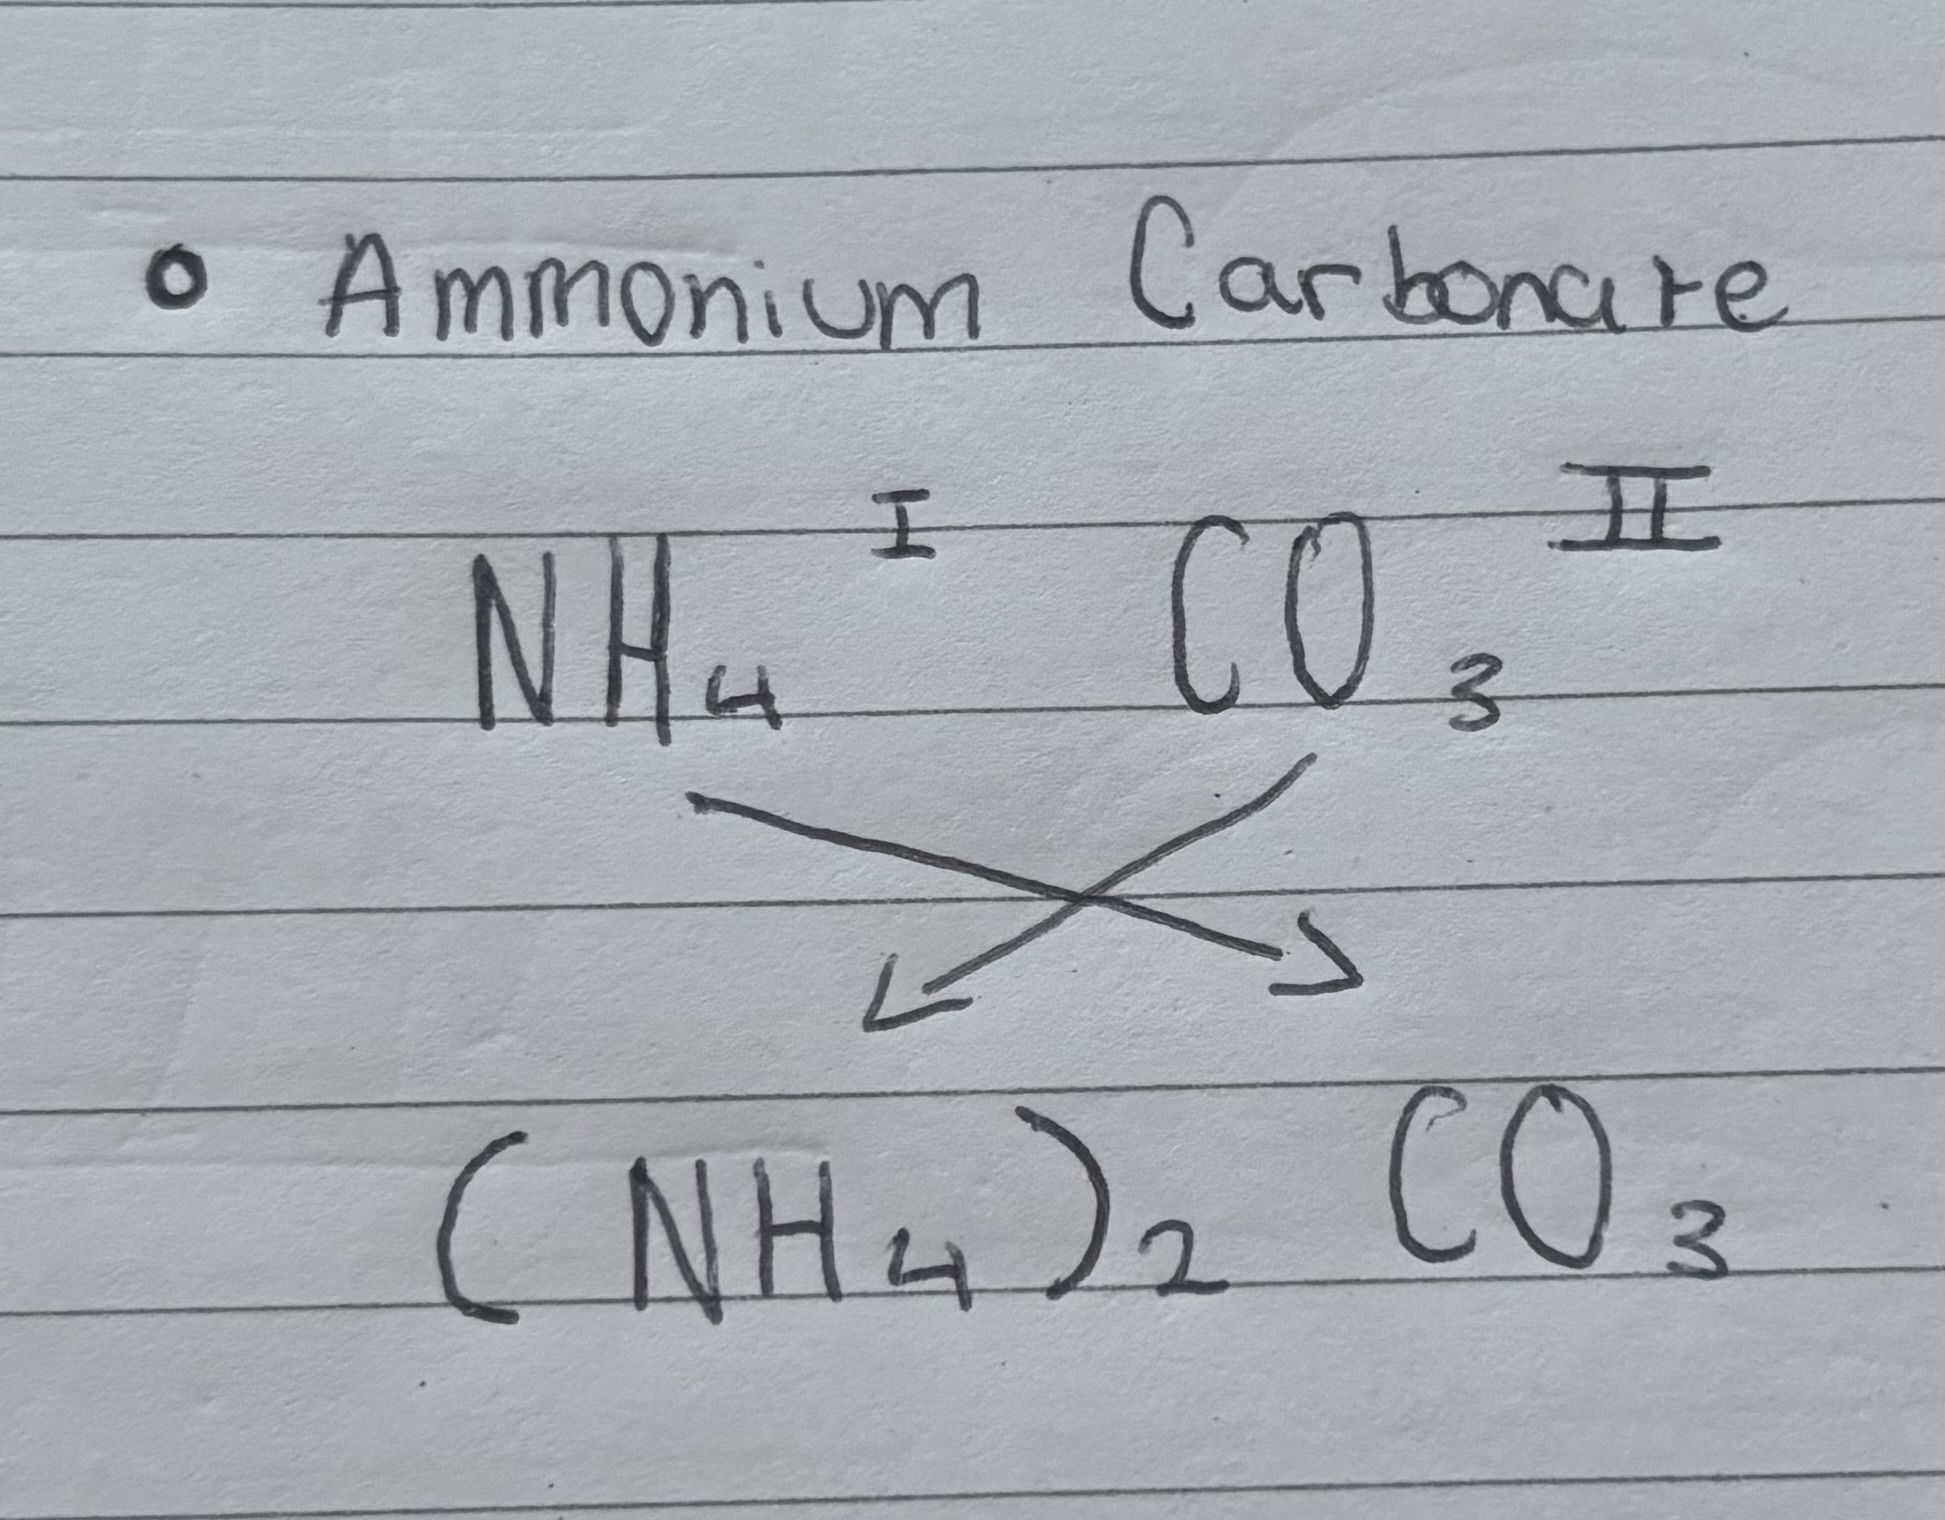 Ammonium Carbonate
NH₄ I CO₃ II
(NH₄)₂ CO₃